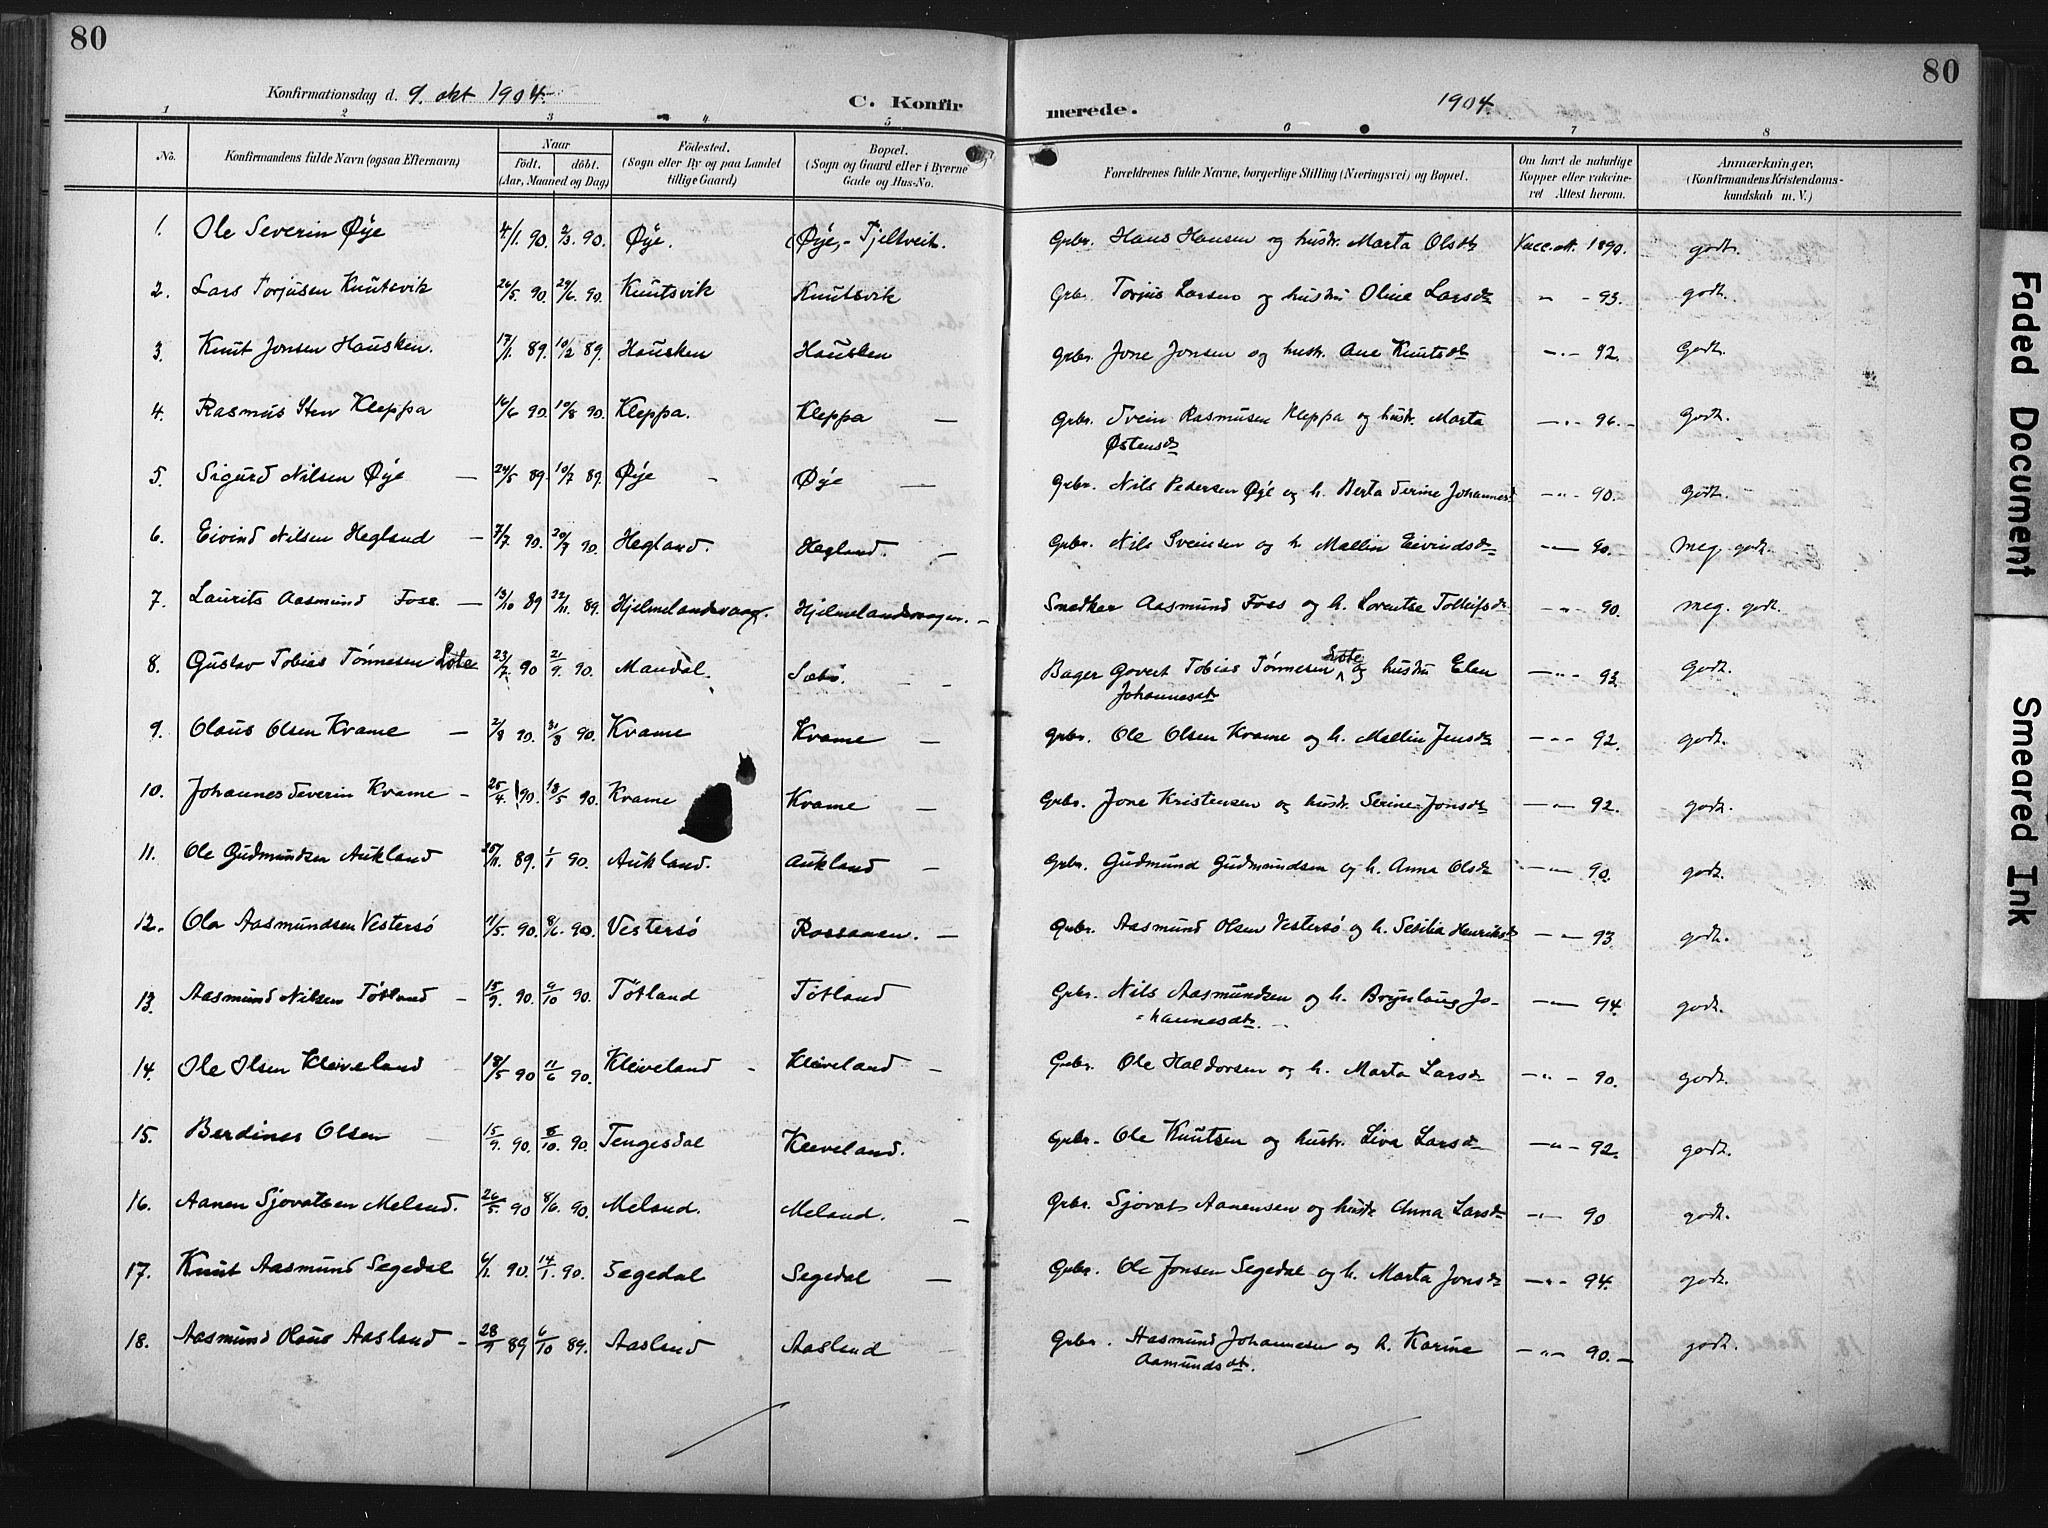 80
80
Konfirmationsdag d. 9. okt 1904.
C. Konfir
merede.
1904
1 2 3 4 5 6 7 8
No. Konfirmandens fulde Navn (ogsaa Efternavn) Naar født. døbt. (Aar, Maaned og Dag) Fødested. (Sogn eller By og paa Landet tillige Gaard) Bopæl. (Sogn og Gaard eller i Byerne Gade og Hus-No. Forældrenes fulde Navne, borgerlige Stilling (Næringsvei) og Bopæl. Om havt de naturlige Kopper eller vakcineret Attest herom. Anmærkninger. (Konfirmandens Kristendomskundskab m. V.)
1. Ole Severin Øye 4/1. 90. 2/3. 90. Øye. (Øye,- Tjeltveit. Grbr. Hans Hansen og hustr. Marta Olsdt Vacc.at. 1890. godt.
2. Lars Torjusen Knutsvik 26/5 90. 29/6. 90. Knutsvik Knutsvik Grbr. Torjus Larsen og hustru Oline Larsdt " - 93. godt.
3. Knut Jonsen Hausken. 17/1. 89. 10/2 89. Hausken Hausken Grbr. Jone Jonsen og hustr. Ane Knutsdt - " - 92. Godt.
4. Rasmus Sten Kleppa 16/6 90. 10/8 90. Kleppa. Kleppa — Grbr. Svein Rasmusen Kleppa og hustr. Marta - " - 96. - Godt.
Østensdt
5. Sigurd Nilsen Øye — 24/5 89. 10/7 89. Øye - Øye — Grbr. Nils Pedersen Øye og h. Berta Serine Johannesd - " - 90. Godt.
6. Eivind Nilsen Hegland — 7/7. 90. 20/7 90. Hegland. Hegland. — Grbr. Nils Sveinsen og h. Mallin Eivindsdt - " - 90. Meg. godt.
7. Laurits Aasmund Foss. — 13/10 89 22/11. 89. Hjelmelandsvaag. Hjelmelandsvaagen. - Snedker Aasmund Foss og h. Lorentse Tolleifsdt - " - 90. Meg. godt.
8. Gustav Tobias Tønnesen Lote 23/7 90 21/9. 90. Mandal. Sæbø. Bager Govert Tobias Tønnesen og hustru Elen - " - 93. Godt.
Johannesdt
9. Olaus Olsen Kvame — 2/8 90. 31/8 90. Kvame Kvame — Grbr. Ole Olsen Kvame og h. Mallin Jensdt - " - 92. godt.
10. Johannes Severin Kvame - 25/4. 90. 18/5 90. Kvame Kvame — Grbr. Jone Kristensen og hustr. Serine Jonsdt - " - 92. godt.
11. Ole Gudmundsen Aukland 25/11. 89. 1/1 90. Aukland. Aukland — Grbr. Gudmund Gudmundsen og h. Anna Olsdt - " - 90. godt.
12. Ola Aasmundsen Vestersø 11/5 90. 8/6. 90. Vestersø Rossanen. — Grbr. Aasmund Olsen Vestersø og h. Sesilia Henriksdt - " - 93 godt.
13. Aasmund Nilsen Tøtland - 15/9. 90. 9/10 90. Tøtland Tøtland Grbr. Nils Aasmundsen og h. Brynlaug Jo- - " - 94. godt.
hannesdt.
14. Ole Olsen Kleiveland 18/5 90 11/6 90. Kleiveland - Kleiveland — Grbr. Ole Haldorsen og h. Marta Larsdt - " - 90. godt.
15. Berdines Olsen 15/9. 90. 5/10. 90. Tengesdal Kleiveland. Grbr. Ole Knutsen og hustr. Liva Larsdt - " - 92. godt.
16. Aanen Sjovatsen Meland. 26/5. 90 8/6. 90. Meland. Meland. — Grbr. Sjovat Aanensen og hustr Anna Larsdt - " - 90 godt.
17. Knut Aasmund Segedal 6/1. 90. 14/1. 90. Segedal Segedal — Grbr. Ole Jonsen Segedal og h. Marta Jonsdt - " - 94. godt.
18. Aasmund Olaus Aasland - 28/9 89 6/10 89. Aasland Aasland Grbr. Aasmund Johannesen og h. Karine - " - 90. - godt.
Aamundsdt.
Faded Document
Smeared Ink